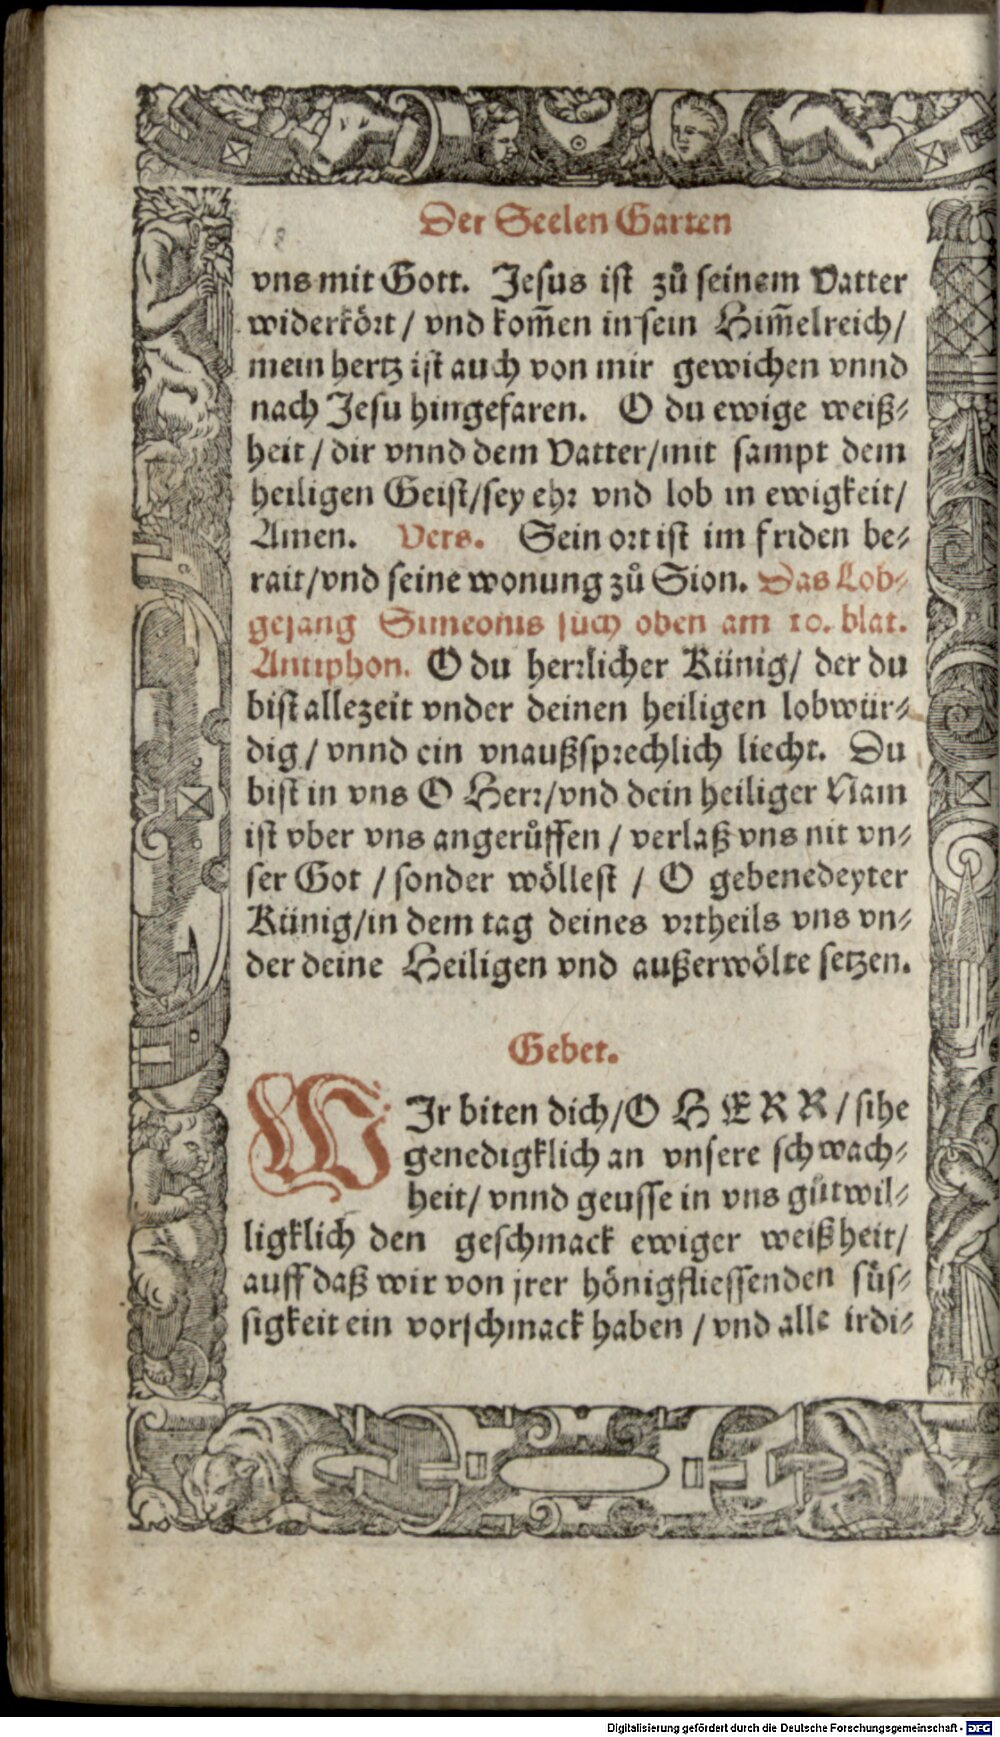 Der Seelen Garten
vns mit Gott. Jesus ist zů seinem Vatter
widerkört / vnd kom̃en in sein Him̃elreich /
mein hertz ist auch von mir gewichen vnnd
nach Jesu hingefaren. O du ewige weiß⸗
heit / dir vnnd dem Vatter / mit sampt dem
heiligen Geist / sey ehr vnd lob in ewigkeit /
Amen. Vers. Sein ort ist im friden be⸗
rait / vnd seine wonung zů Sion. Das Lob⸗
gesang Simeonis such oben am 10. blat.
Antiphon. O du herrlicher Künig / der du
bist allezeit vnder deinen heiligen lobwür⸗
dig / vnnd ein vnaußsprechlich liecht. Du
bist in vns O Herr / vnd dein heiliger Nam
ist vber vns angerůffen / verlaß vns nit vn⸗
ser Got / sonder wöllest / O gebenedeyter
Künig / in dem tag deines vrtheils vns vn⸗
der deine Heiligen vnd außerwölte setzen.
Gebet.
WIr biten dich / O HERR / sihe
genedigklich an vnsere schwach⸗
heit / vnnd geusse in vns gůtwil⸗
ligklich den geschmack ewiger weißheit /
auff daß wir von jrer hönigfliessenden süs⸗
sigkeit ein vorschmack haben / vnd alle irdi⸗
Digitalisierung gefördert durch die Deutsche Forschungsgemeinschaft - DFG